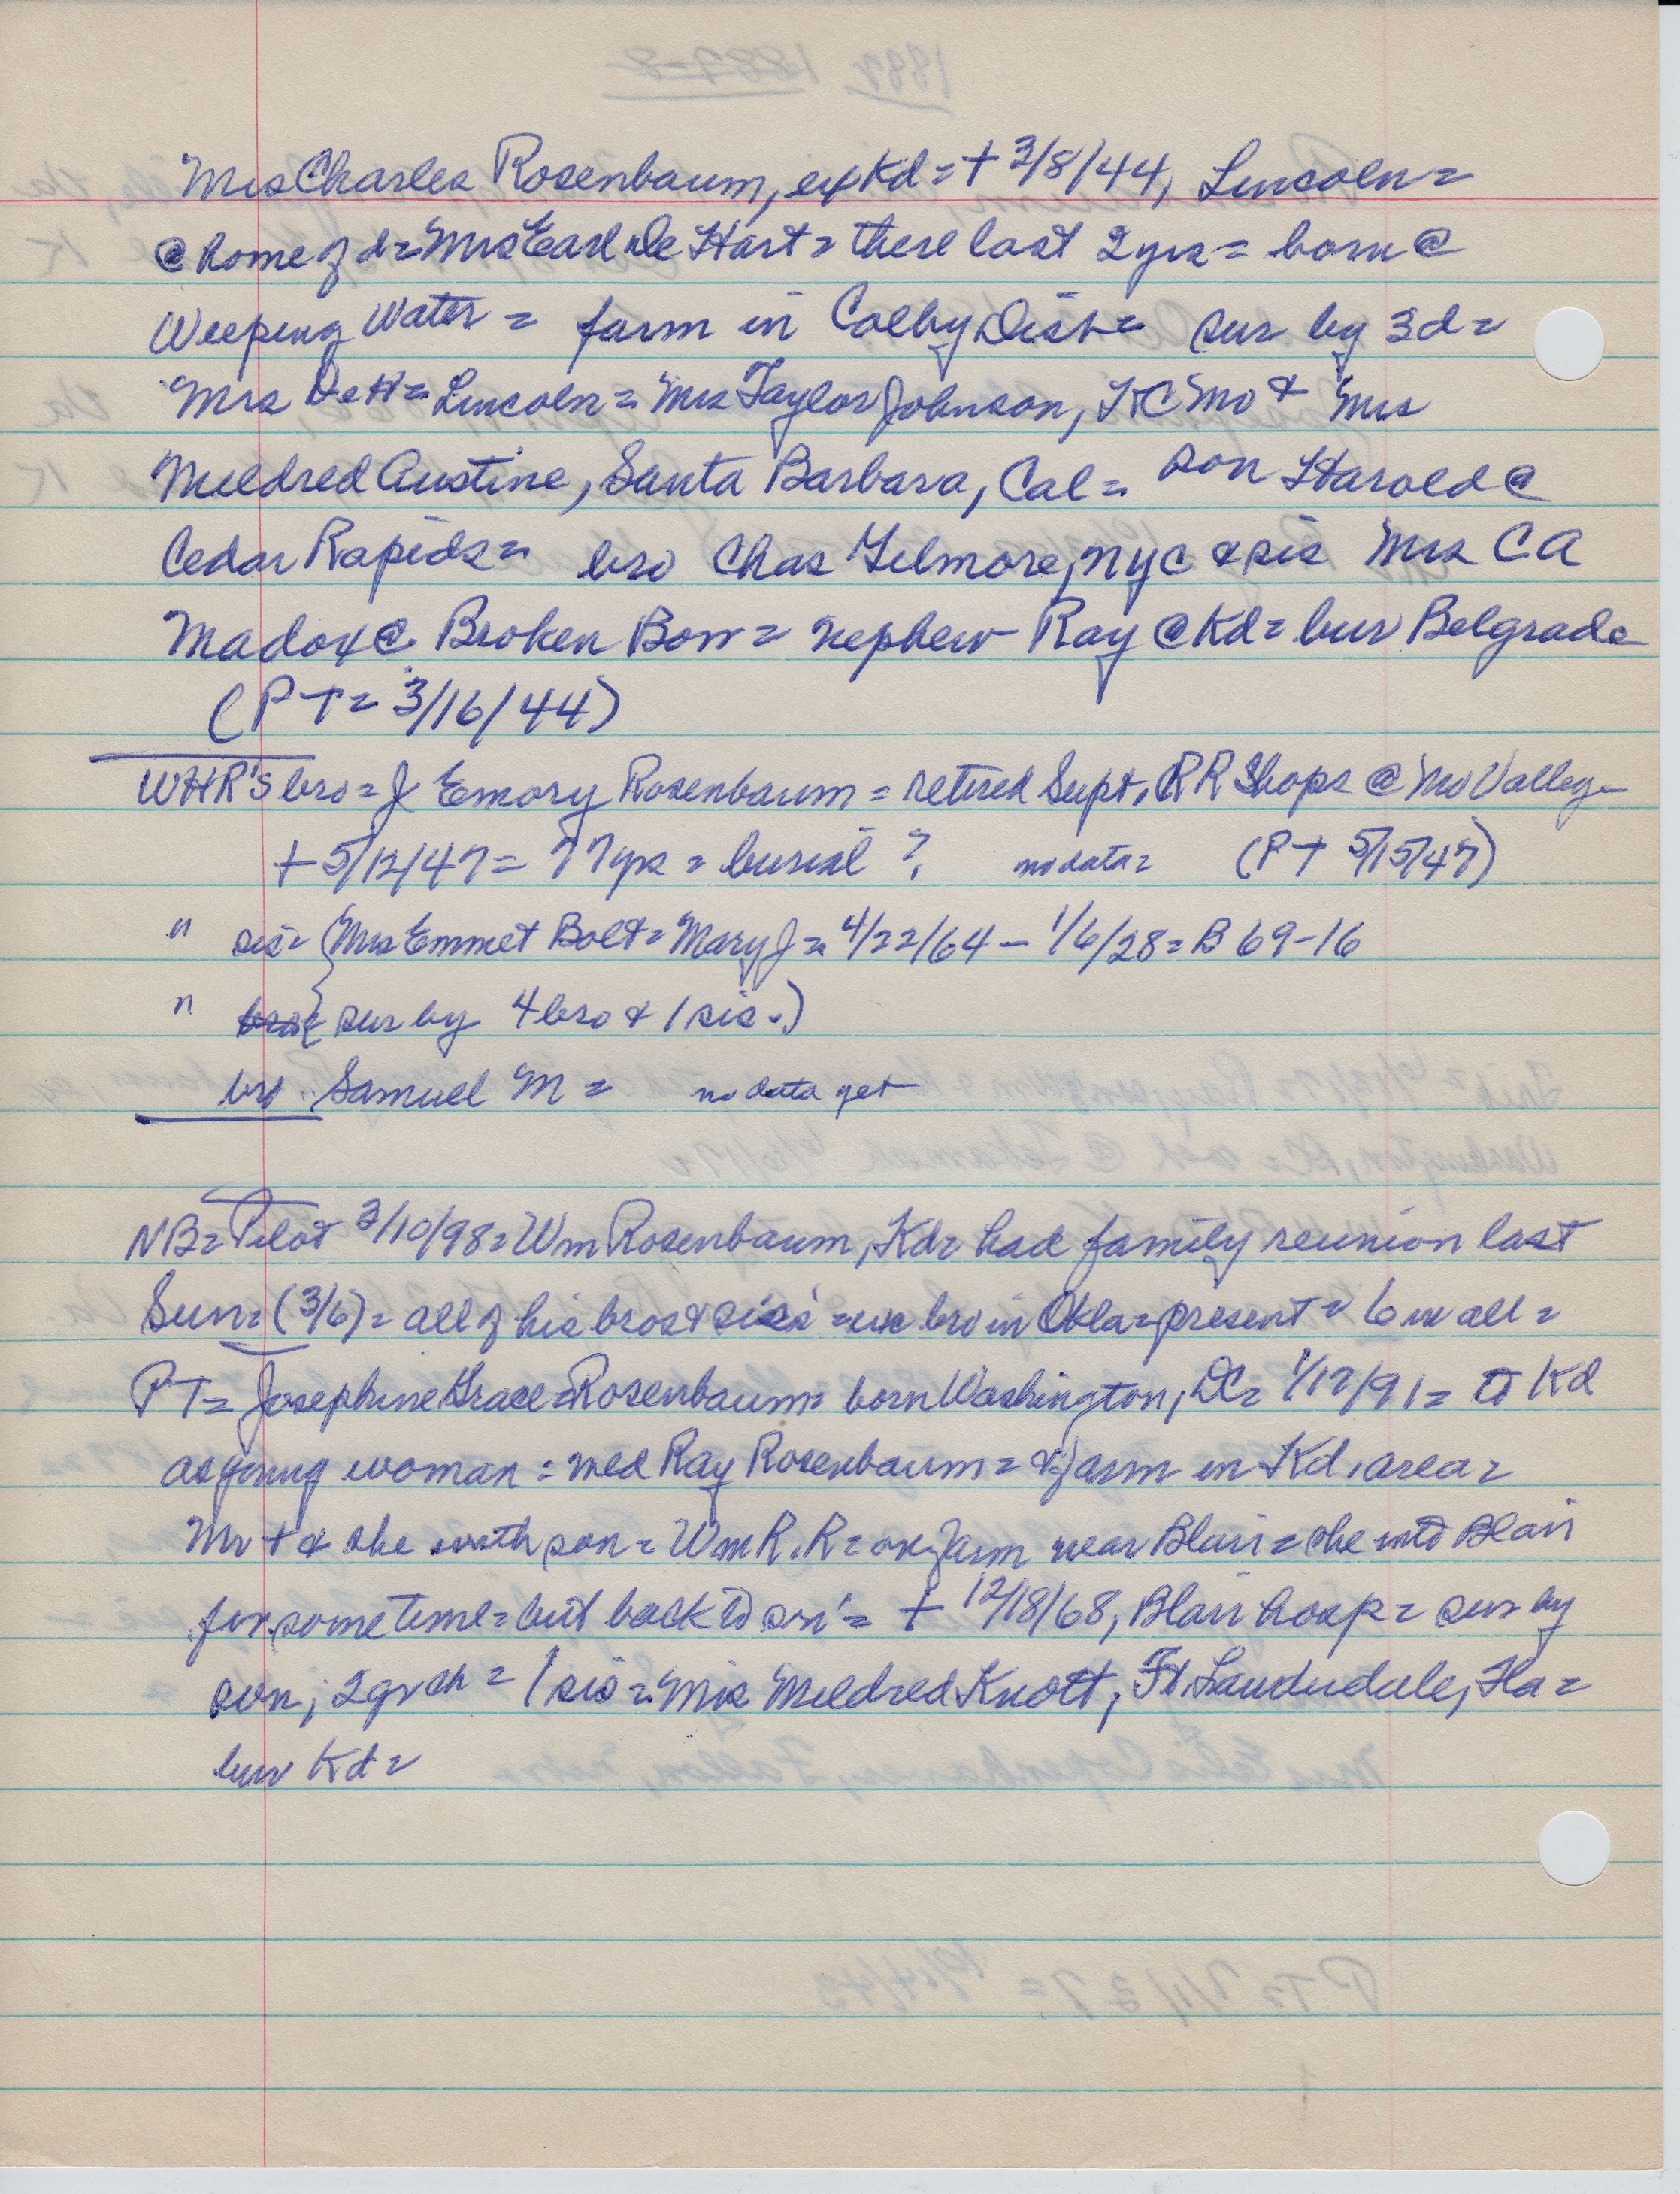 Mrs Charles Rosenbaum, ex Kd = + 3/8/44, Lincoln =
@ home of d = Mrs Earl De Hart = there last 2 yrs = born @
Weeping Water = farm in Colby Dist = sur by 3d =
Mrs DeH = Lincoln = Mrs Taylor Johnson, KC Mo & Mrs
Mildred Austine, Santa Barbara, Cal = son Harold @
Cedar Rapids = bro Chas Gilmore, NYC & sis Mrs CA
Madox @ Broken Bow = nephew Ray @ Kd = bur Belgrade
(PT = 3/16/44)
WHR's bro = J Emory Rosenbaum = retired Supt, RR Shops @ Mo Valley
+ 5/12/47 = 77 yrs = burial ? no data = (PT 5/15/47)
" sis = {Mrs Emmet Bolt = Mary J = 4/22/64 – 1/6/28 = B 69-16
" { sur by 4 bro & 1 sis.)
bro Samuel M = no data yet
NB = Pilot 3/10/98 = Wm Rosenbaum, Kd = had family reunion last
Sun = (3/6) = all of his bros & sis's = exc bro in Okla = present = 6 in all =
PT = Josephine Grace Rosenbaum = born Washington, DC = 1/12/91 = to Kd
as young woman = med Ray Rosenbaum = & farm in Kd. area =
Mr + & she with son = Wm R. R = on farm near Blair = she into Blair
for some time = but back to son's = + 12/18/68, Blair hosp = sur by
son; 2 gr ch = 1 sis = Mrs Mildred Knott, Ft. Lauderdale, Fla =
bur Kd =